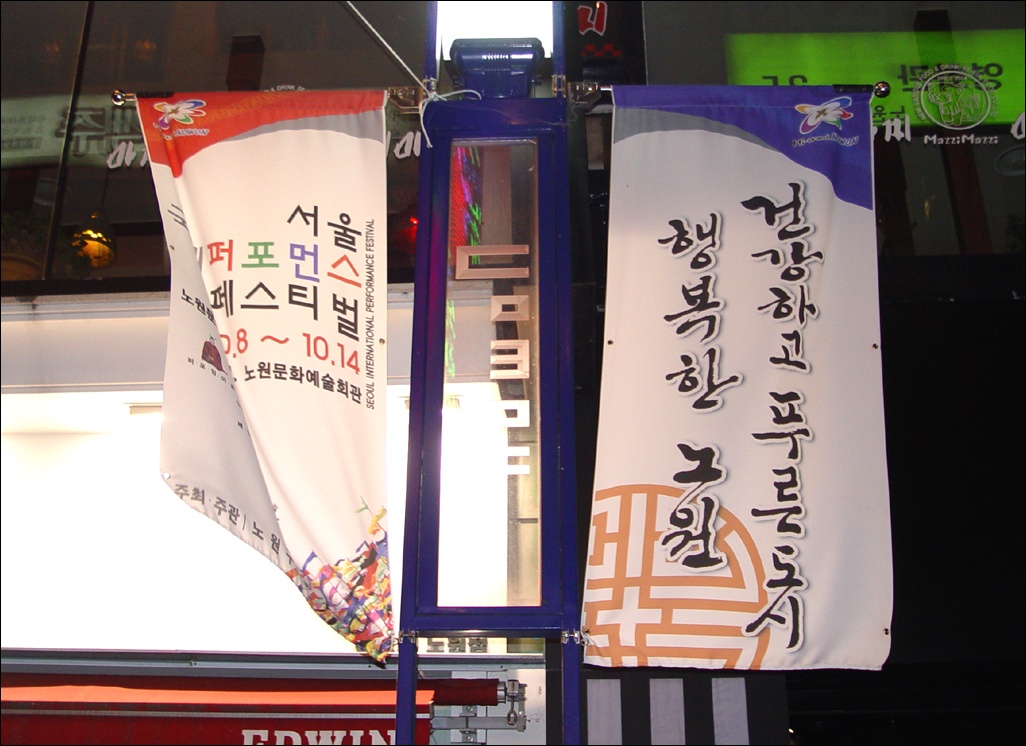 서울
퍼포먼스
페스티벌
SEOUL INTERNATIONAL PERFORMANCE FESTIVAL
0.8 ~ 10.14
노원문화예술회관
주최·주관 | 노원
건강하고 푸른도시
행복한 노원
MazziMazzi
EDWIN